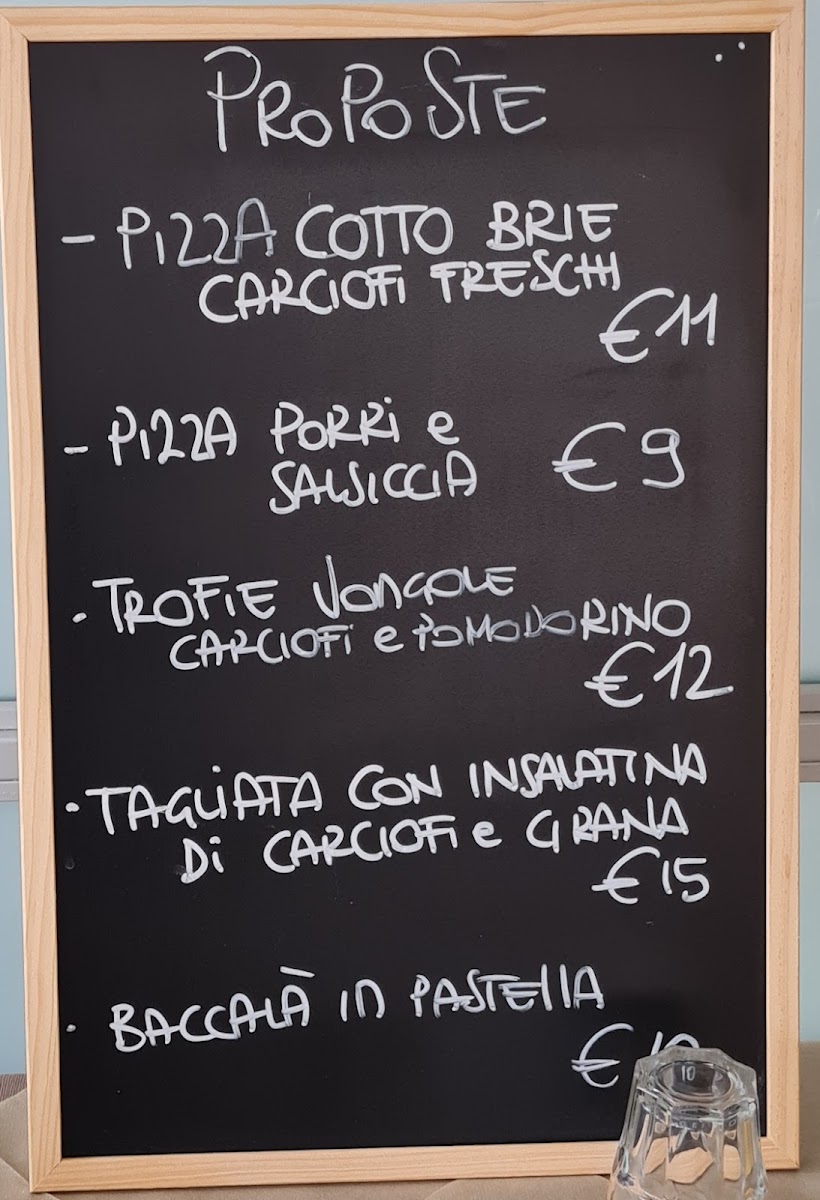 PROPOSTE
- PIZZA COTTO BRIE
CARCIOFI FRESCHI
€11
- PIZZA PORRI e
SALSICCIA €9
· TROFIE VONGOLE
CARCIOFI e POMODORINO
€12
· TAGLIATA CON INSALATINA
Di CARCIOFI e GRANA
€15
· BACCALÀ in PASTELLA
€